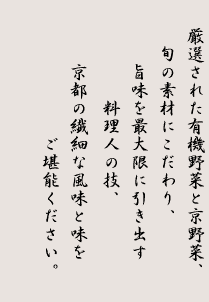 厳選された有機野菜と京野菜、
旬の素材にこだわり、
旨味を最大限に引き出す
料理人の技、
京都の繊細な風味と味を
ご堪能ください。